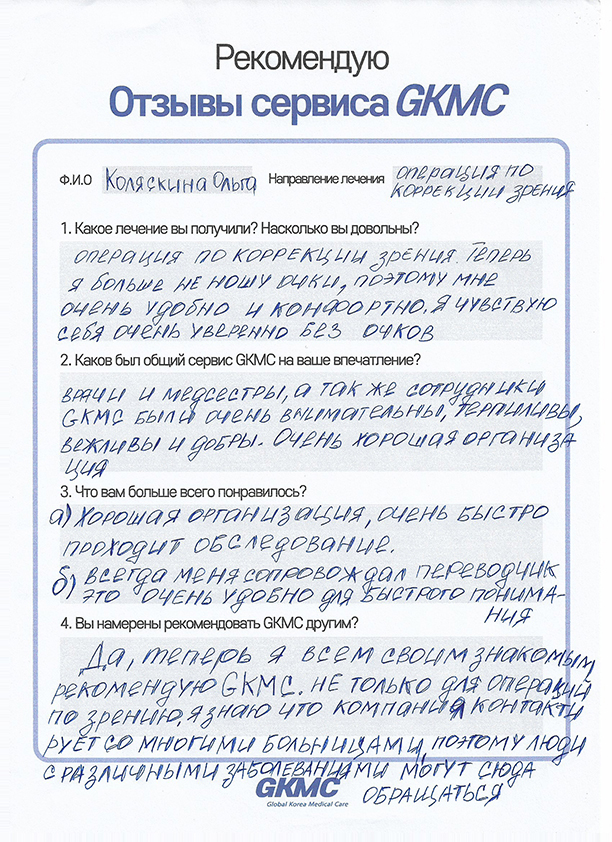 Рекомендую
Отзывы сервиса GKMC
Ф.И.О Коляскина Ольга Направление лечения операция по
коррекции зрения
1. Какое лечение вы получили? Насколько вы довольны?
операция по коррекции зрения. Теперь
я больше не ношу очки, поэтому мне
очень удобно и конфортно. Я чувствую
себя очень уверенно без очков
2. Каков был общий сервис GKMC на ваше впечатление?
врачи и медсестры, а так же сотрудники
GKMC были очень внимательны, терпиливы,
вежливы и добры. Очень хорошая организа
ция
3. Что вам больше всего понравилось?
а) Хорошая организация, очень быстро
проходит обследование.
б) всегда меня сопровождал переводчик
это очень удобно для быстрого понима-
ния
4. Вы намерены рекомендовать GKMC другим?
Да, теперь я всем своим знакомым
рекомендую GKMC. не только для операций
по зрению, я знаю что компания контакти
рует со многими больницами, поэтому люди
с различными заболеваниями могут сюда
обращаться
GKMC
Global Korea Medical Care